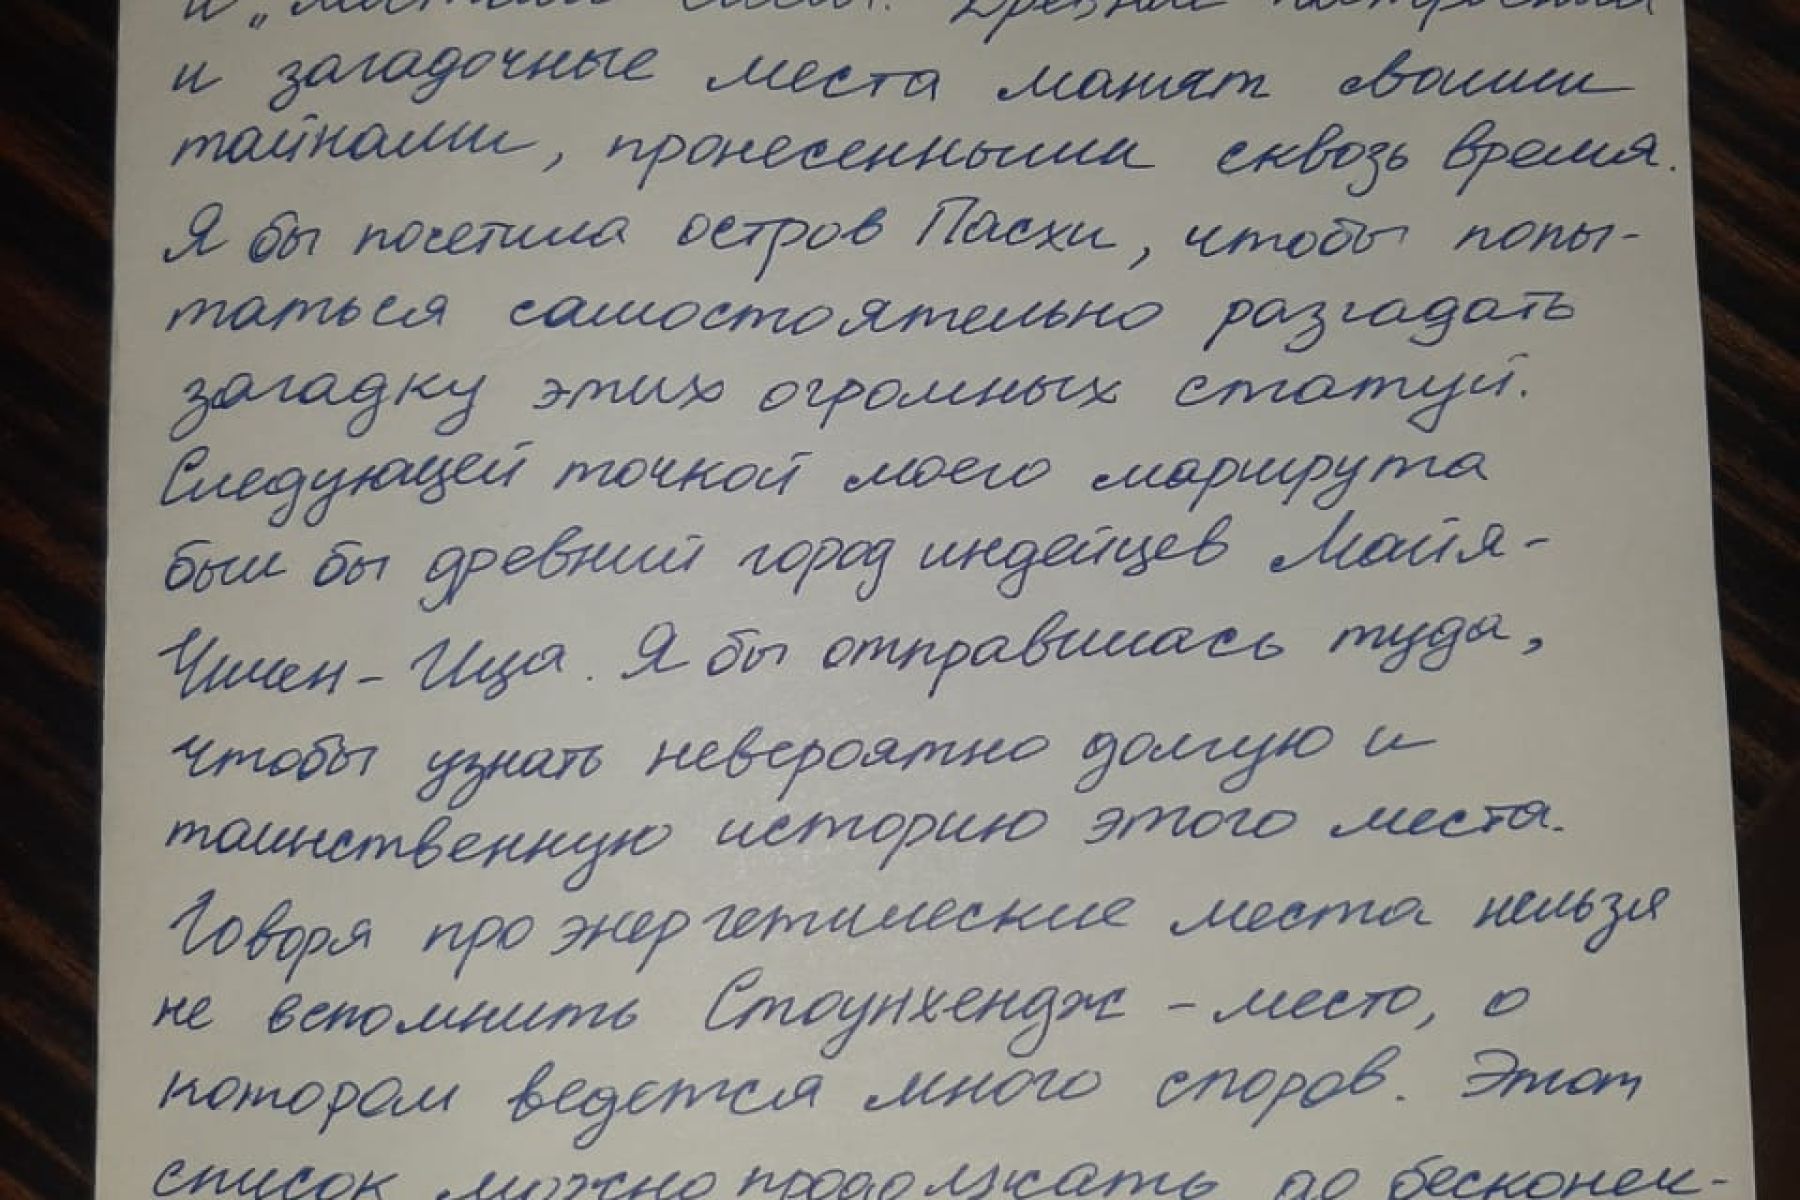 и „местами силы". Древние постройки
и загадочные места манят своими
тайнами, пронесенными сквозь время.
Я бы посетила остров Пасхи, чтобы попы-
таться самостоятельно разгадать
загадку этих огромных статуй.
Следующей точкой моего маршрута
был бы древний город индейцев Майя-
Чичен-Ица. Я бы отправилась туда,
чтобы узнать невероятно долгую и
таинственную историю этого места.
Говоря про энергетические места нельзя
не вспомнить Стоунхендж - место, о
котором ведется много споров. Этот
список можно продолжать до бесконеч-